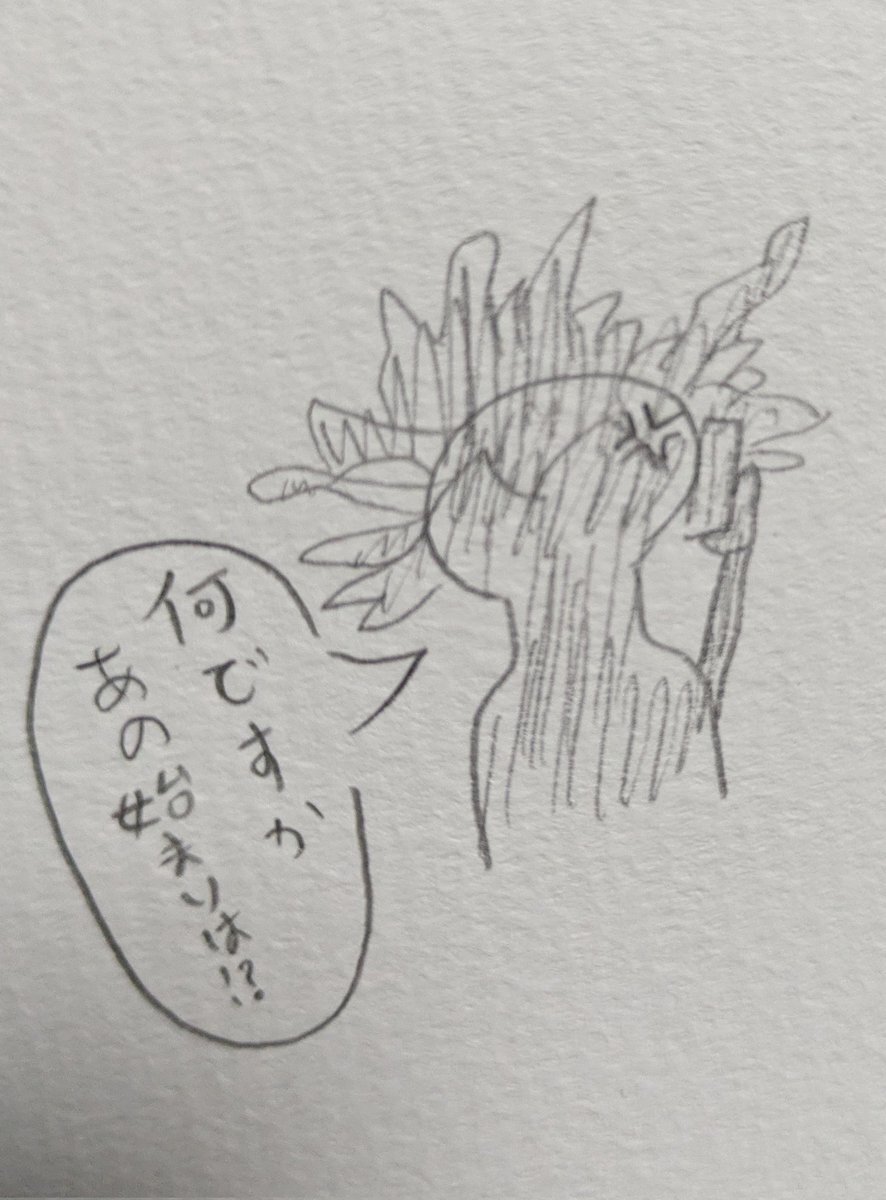 何ですか
あの始まりは!?